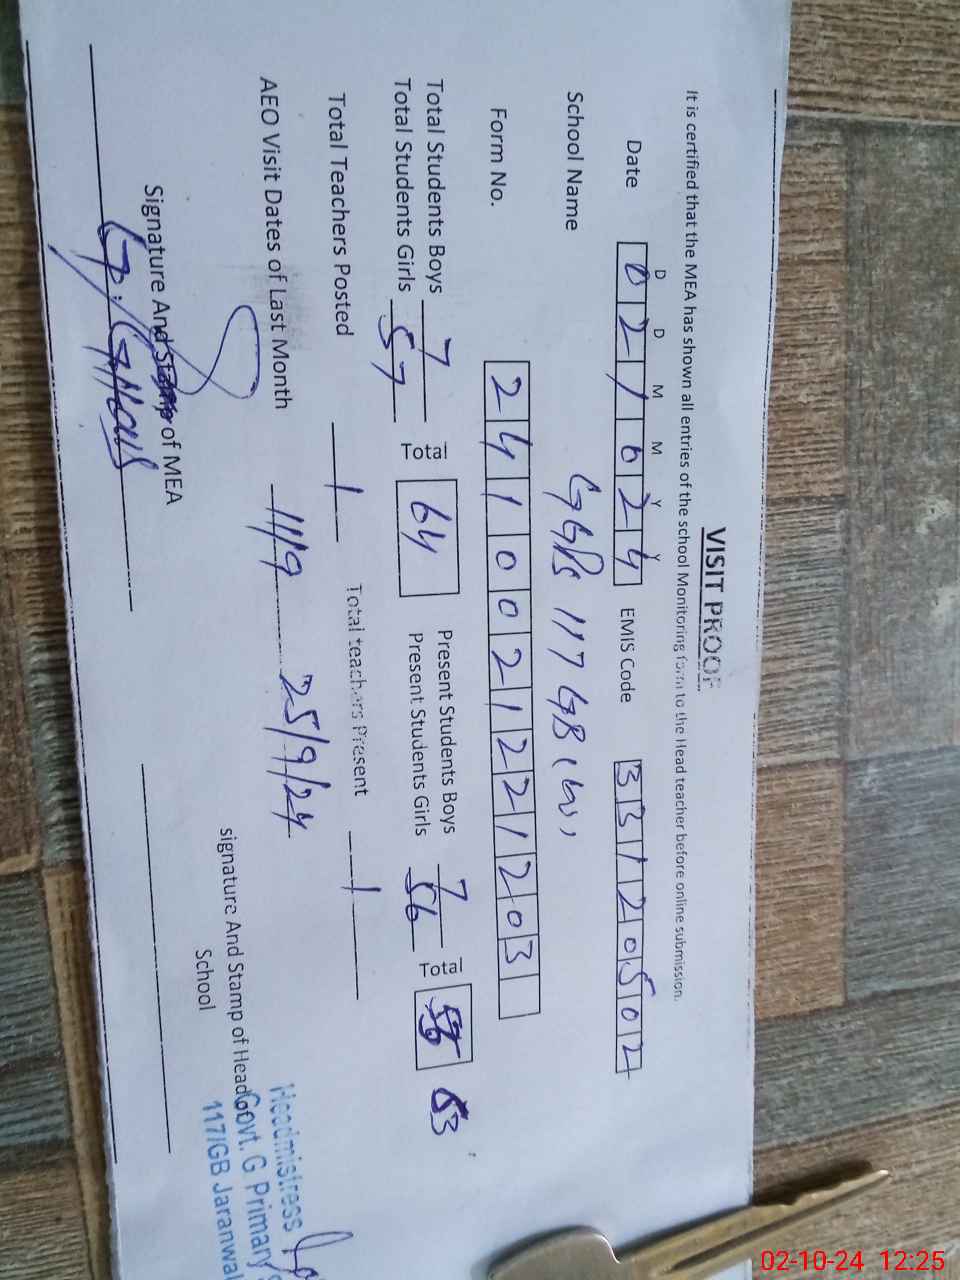 VISIT PROOF
It is certified that the MEA has shown all entries of the school Monitoring form to the Head teacher before online submission.
D D M M Y Y
Date 021024 EMIS Code 33120502
School Name GGPS 117 GB
Form No. 2410021221203
Total Students Boys 7 Present Students Boys 7
Total Students Girls 57 Total 64 Present Students Girls 56 Total 63
Total Teachers Posted 1 Total teachers Present 1
AEO Visit Dates of Last Month 11/9 25/9/24
Signature And Stamp of MEA
signature And Stamp of Head of
School
Headmistress
Govt. G Primary
117/GB Jaranwal
02-10-24 12:25